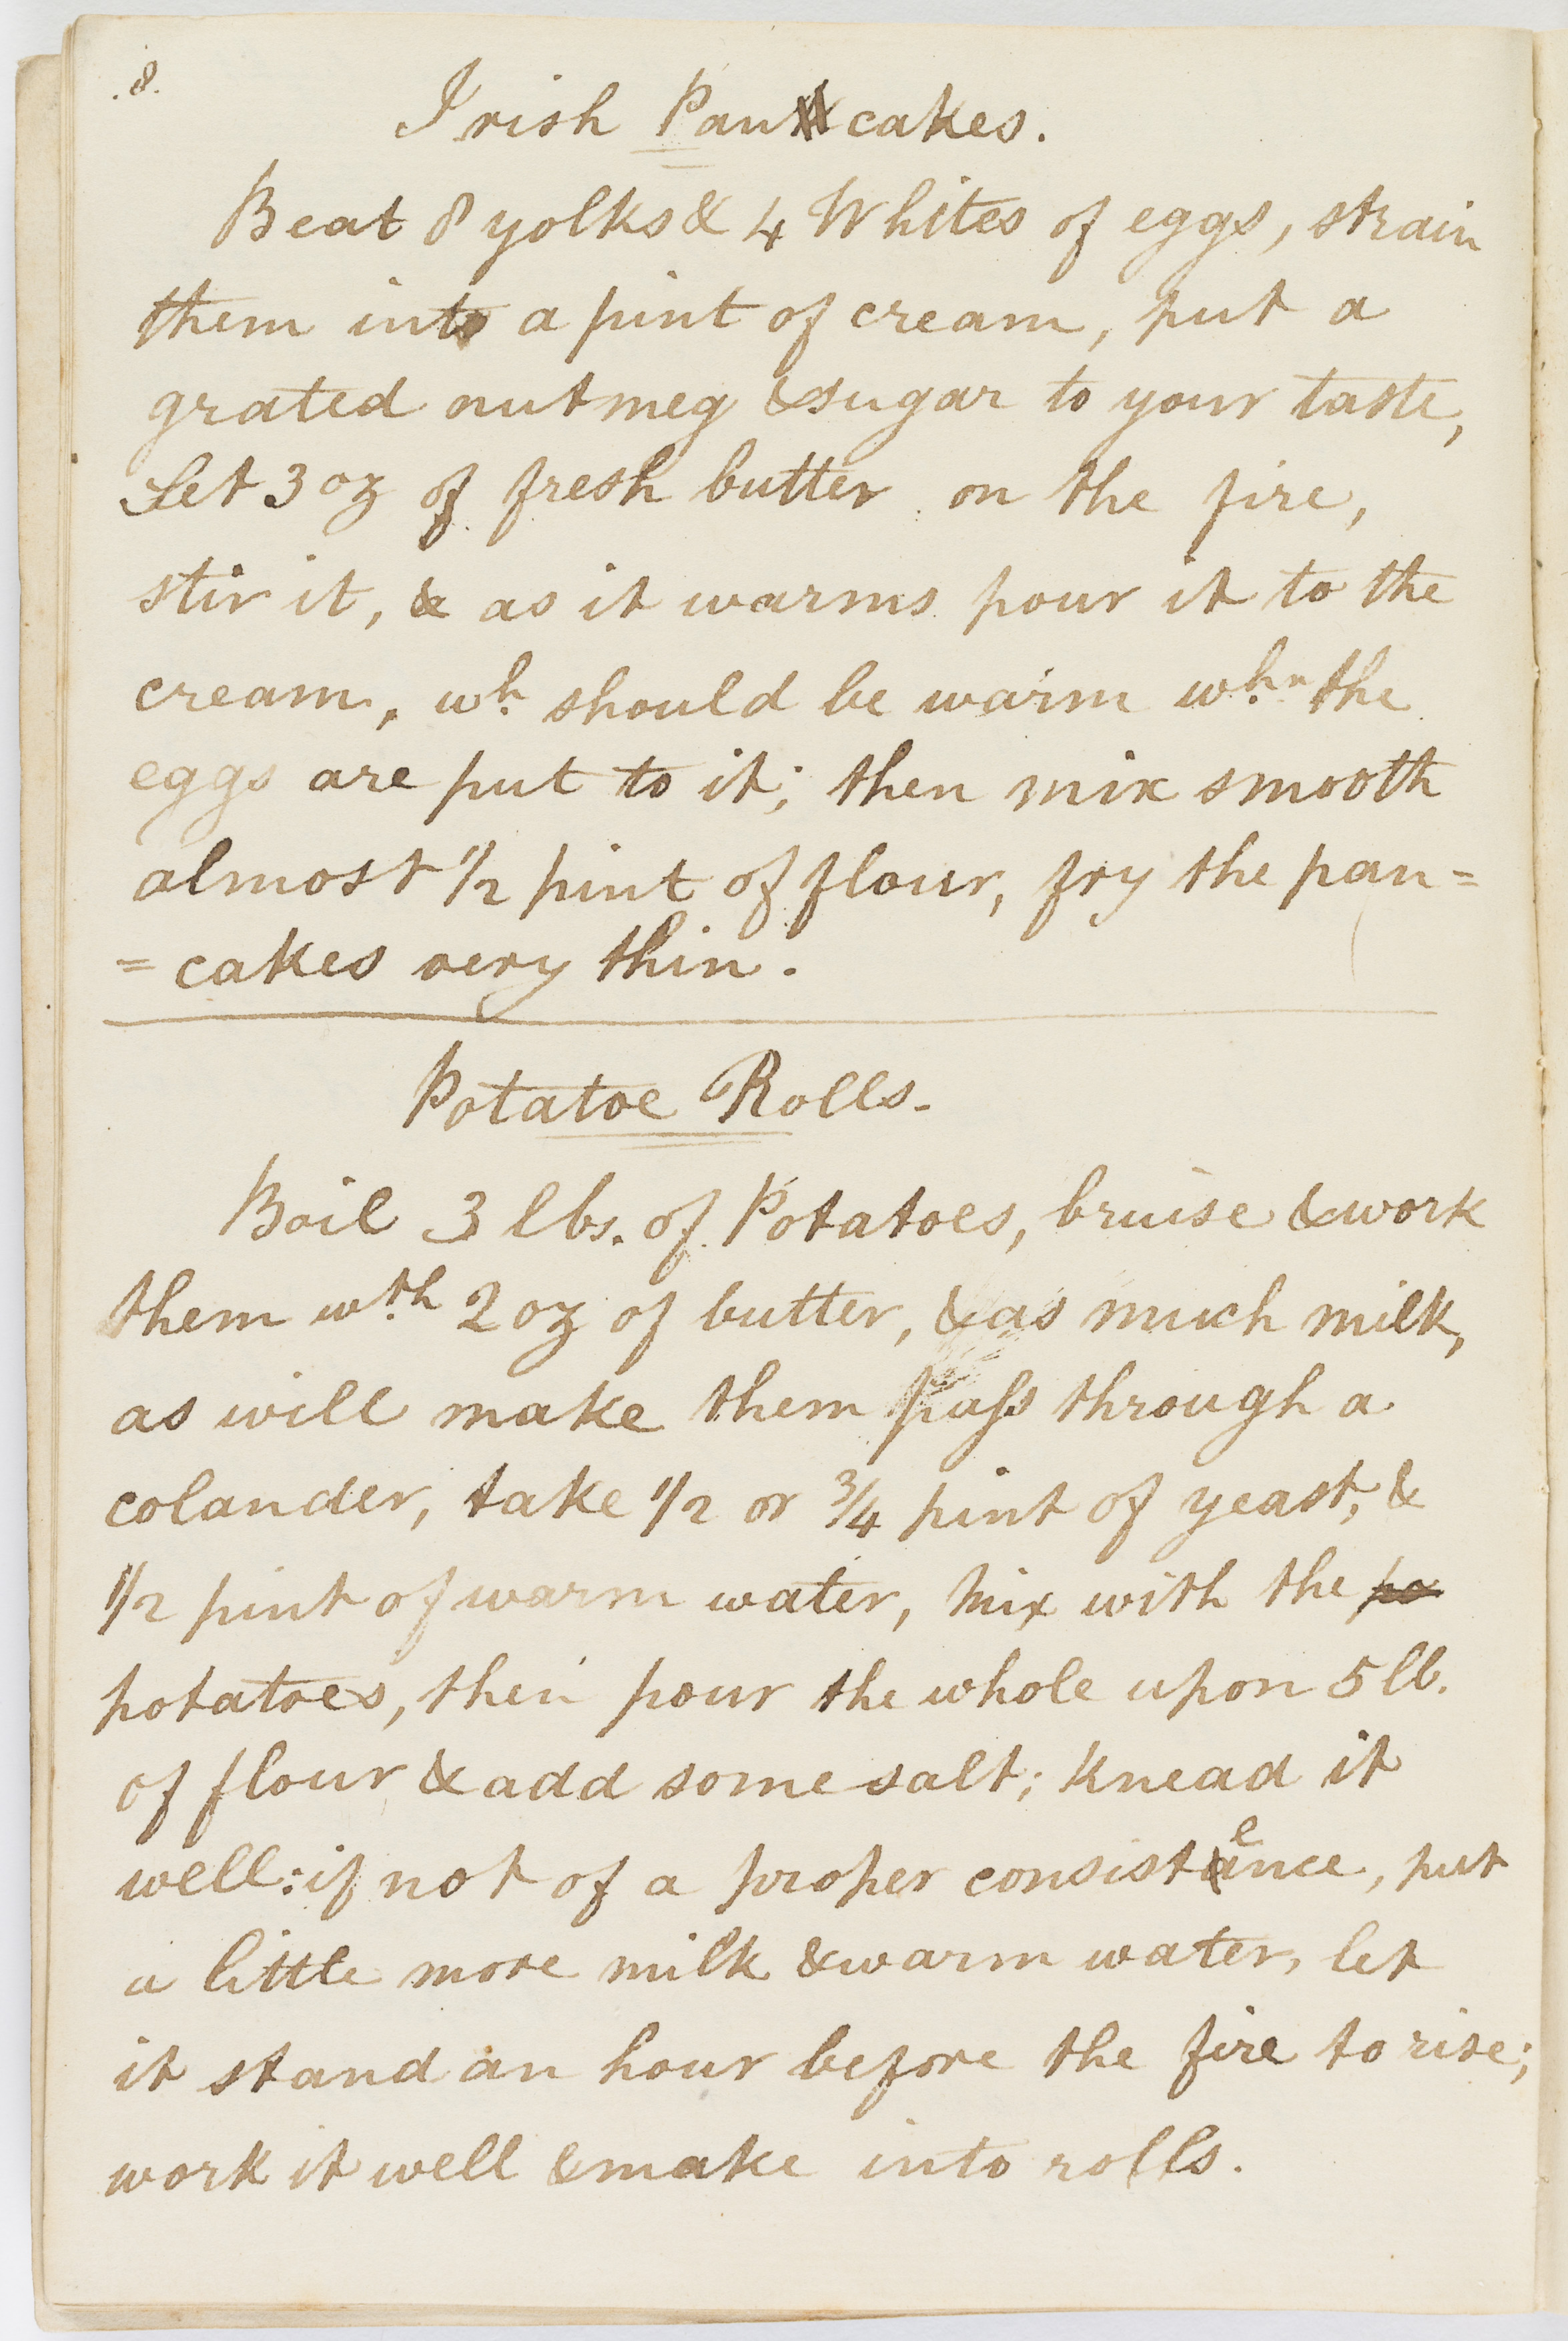 .8.
Irish Pancakes.
Beat 8 yolks & 4 Whites of eggs, strain
them into a pint of cream, put a
grated nutmeg & sugar to your taste,
Set 3 oz of fresh butter on the fire,
stir it, & as it warms pour it to the
cream, wh. should be warm whn. the
eggs are put to it; then mix smooth
almost 1/2 pint of flour, fry the pan=
=cakes very thin.
Potatoe Rolls.
Boil 3 lbs. of Potatoes, bruise & work
them wth. 2 oz of butter, & as much milk,
as will make them paſs through a
colander, take 1/2 or 3/4 pint of yeast, &
1/2 pint of warm water, Mix with the po
potatoes, then pour the whole upon 5 lb.
of flour & add some salt; knead it
well: if not of a proper consistence, put
a little more milk & warm water, let
it stand an hour before the fire to rise;
work it well & make into rolls.